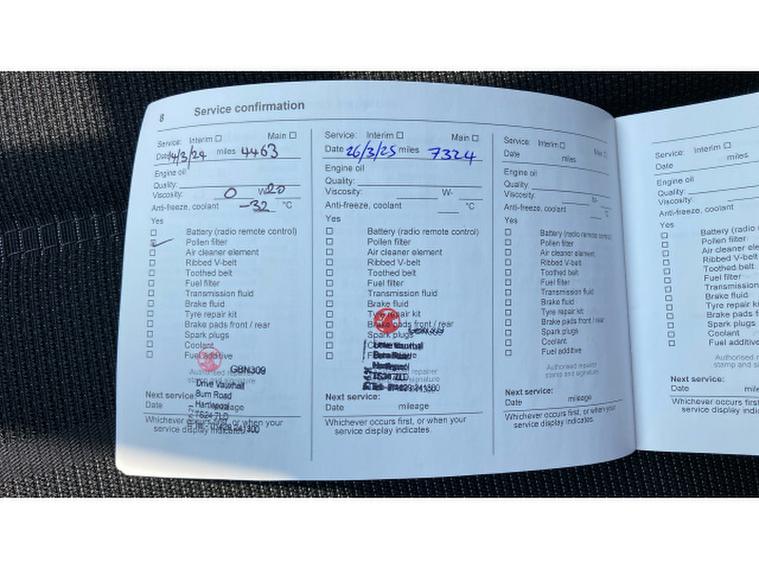 8 Service confirmation
Service: Interim ☐ Main ☐
Date 14/3/24 miles 4463
Engine oil
Quality:
Viscosity: 0 W-20
Anti-freeze, coolant -32 °C
Yes
☐ Battery (radio remote control)
☑ Pollen filter
☐ Air cleaner element
☐ Ribbed V-belt
☐ Toothed belt
☐ Fuel filter
☐ Transmission fluid
☐ Brake fluid
☐ Tyre repair kit
☐ Brake pads front / rear
☐ Spark plugs
☐ Coolant
☐ Fuel additive
GBN309
Authorised repairer
stamp and signature
Drive Vauxhall
Burn Road
Hartlepool
TS24 7LD
Next service:
Date mileage
Whichever occurs first, or when your
service display indicates.
Service: Interim ☐ Main ☐
Date 26/3/25 miles 7324
Engine oil
Quality:
Viscosity: W-
Anti-freeze, coolant °C
Yes
☐ Battery (radio remote control)
☐ Pollen filter
☐ Air cleaner element
☐ Ribbed V-belt
☐ Toothed belt
☐ Fuel filter
☐ Transmission fluid
☐ Brake fluid
☐ Tyre repair kit
☐ Brake pads front / rear
☐ Spark plugs
☐ Coolant
☐ Fuel
Drive Vauxhall
Burn Road
Hartlepool
TS24 7LD
repairer
signature
Next service:
Date mileage
Whichever occurs first, or when your
service display indicates.
Service: Interim ☐ Main ☐
Date miles
Engine oil
Quality:
Viscosity: W-
Anti-freeze, coolant °C
Yes
☐ Battery (radio remote control)
☐ Pollen filter
☐ Air cleaner element
☐ Ribbed V-belt
☐ Toothed belt
☐ Fuel filter
☐ Transmission fluid
☐ Brake fluid
☐ Tyre repair kit
☐ Brake pads front / rear
☐ Spark plugs
☐ Coolant
☐ Fuel additive
Authorised repairer
stamp and signature
Next service:
Date mileage
Whichever occurs first, or when your
service display indicates.
Service: Interim ☐
Date miles
Engine oil
Quality:
Viscosity:
Anti-freeze, coolant
Yes
☐ Battery (radio remote
☐ Pollen filter
☐ Air cleaner element
☐ Ribbed V-belt
☐ Toothed belt
☐ Fuel filter
☐ Transmission fluid
☐ Brake fluid
☐ Tyre repair kit
☐ Brake pads front
☐ Spark plugs
☐ Coolant
☐ Fuel additive
Authorised
stamp and
Next service:
Date mileage
Whichever occurs first, or
service display indicates.